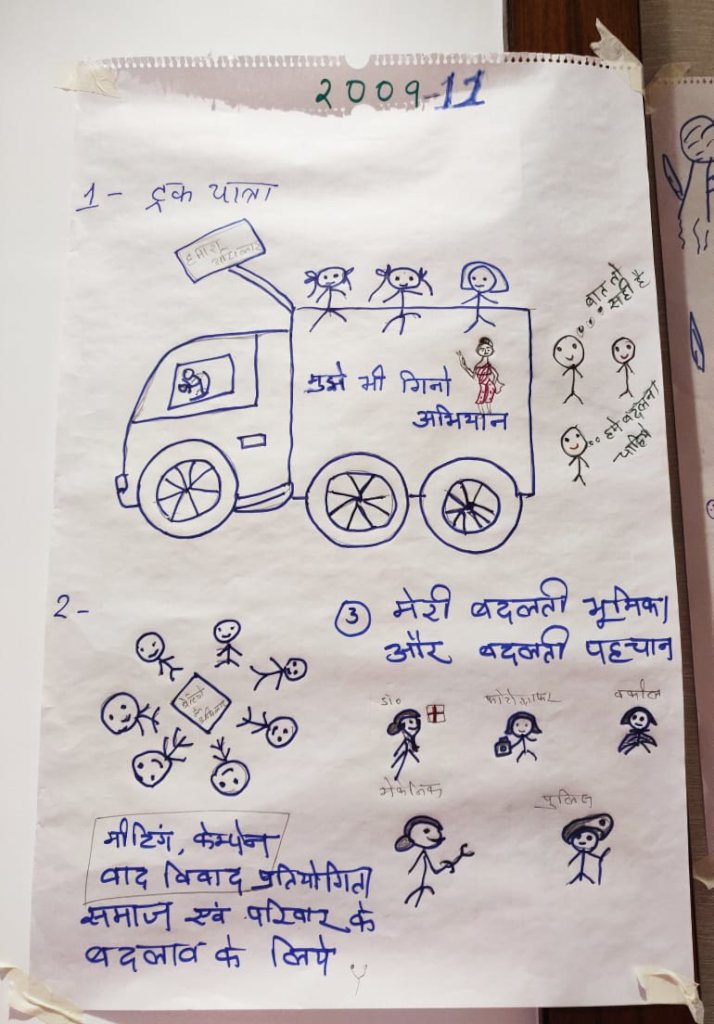 २००९-११
1- ट्रक यात्रा
हमारा
बात तो
सही है
मुझे भी गिनो
अभियान
हमे बदलना
चाहिये
2-
③ मेरी बदलती भूमिका
और बदलती पहचान
डॉ०
फोटोग्राफर
वकील
मेकेनिक
पुलिस
मीटिंग, केम्पेन
वाद विवाद प्रतियोगिता
समाज एवं परिवार के
बदलाव के लिये